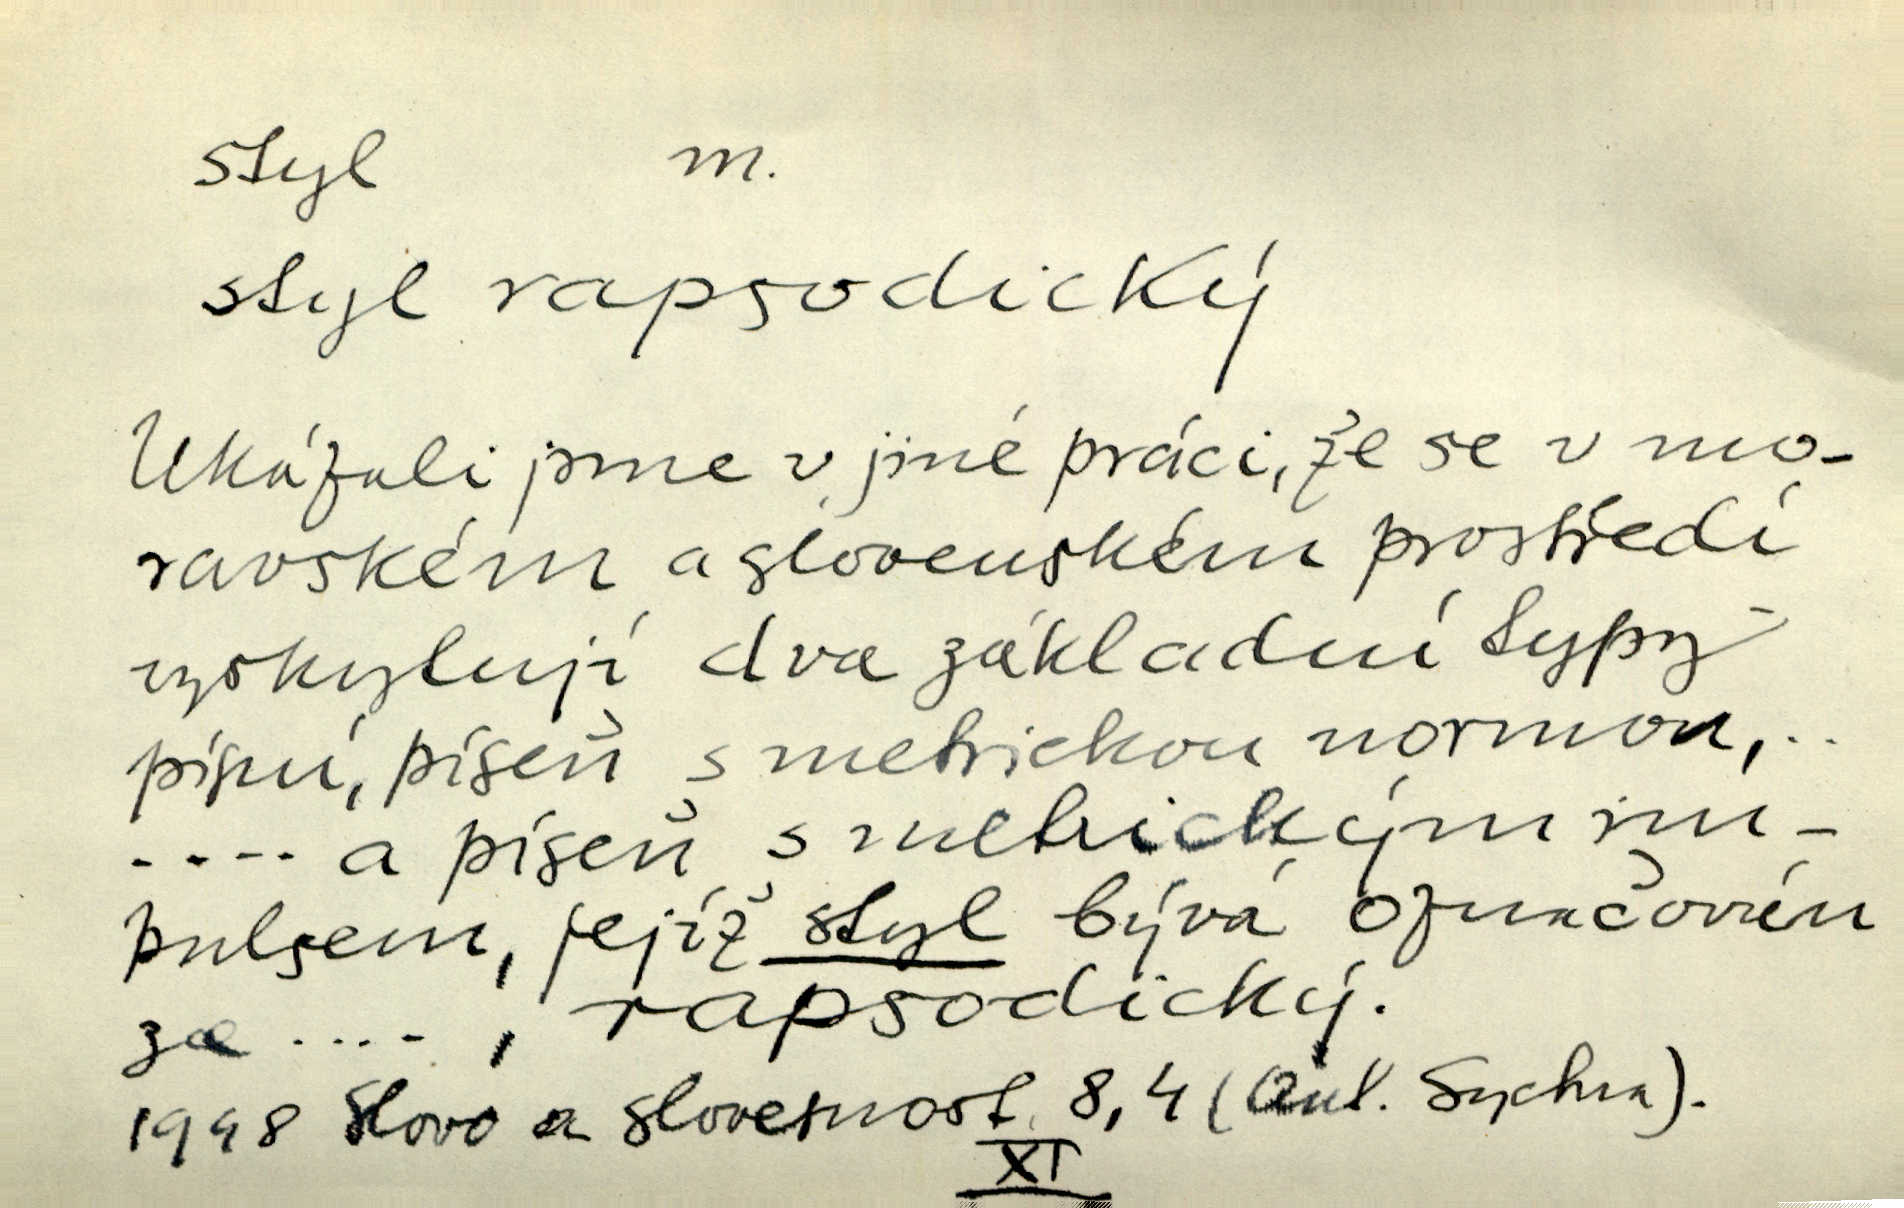 styl m.
styl rapsodický
Ukázali jsme v jiné práci, že se v mo-
ravském a slovenském prostředí
vyskytují dva základní typy
písní, píseň s metrickou normou, ..
.... a píseň s metrickým im-
pulsem, jejíž styl bývá označován
za ...., rapsodický.
1948 Slovo a slovesnost 8, 4 (Ant. Sychra).
XI